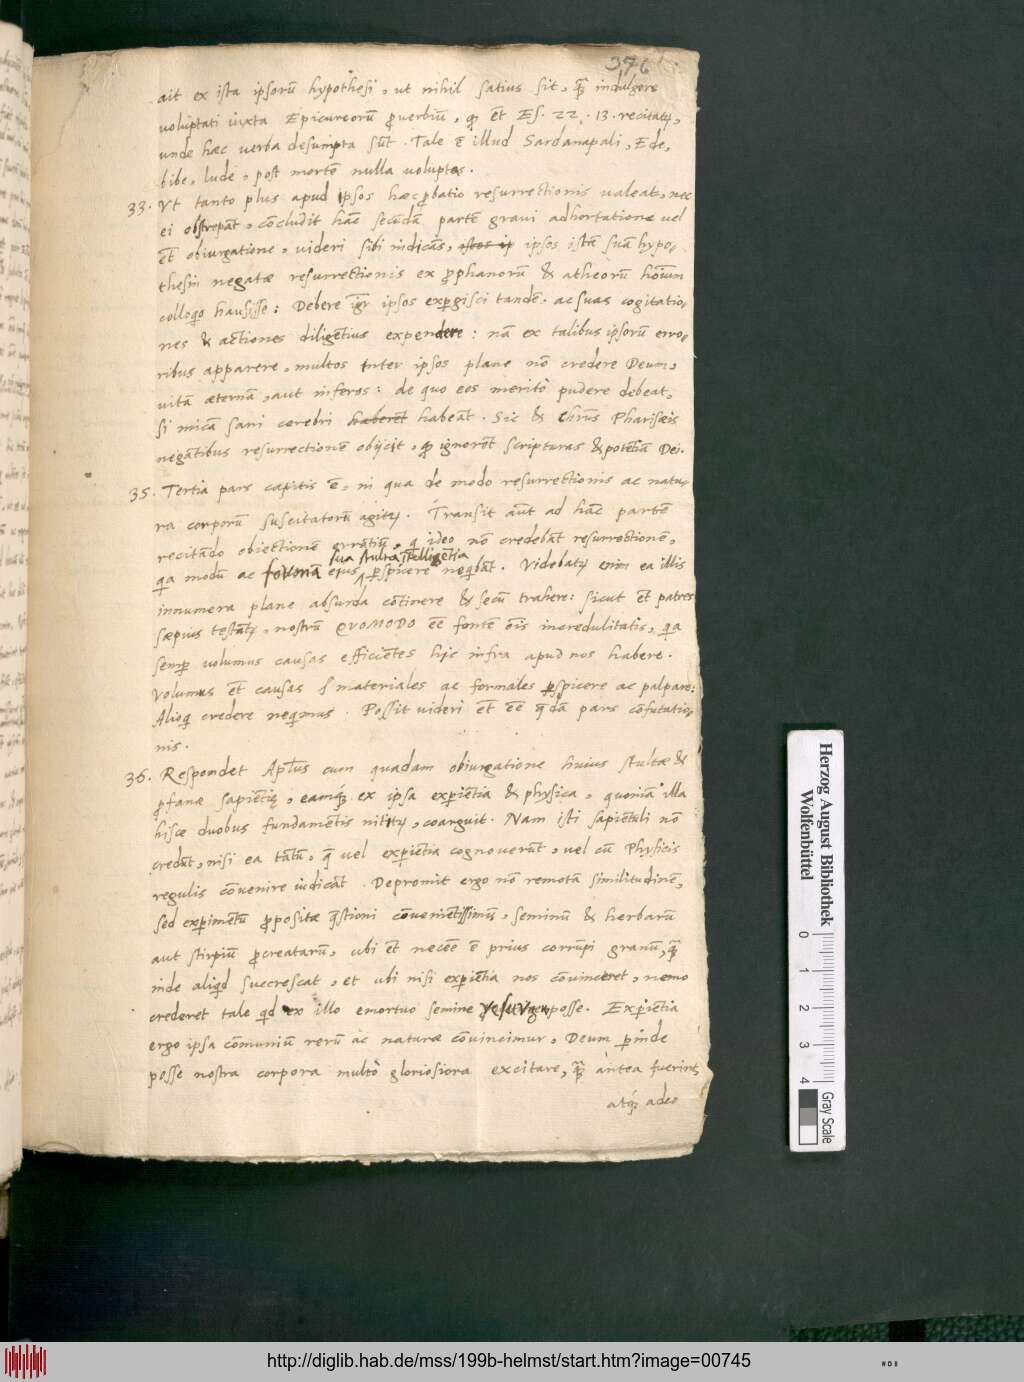 376
ait ex ista ipsorū hypothesi, ut nihil satius sit, quā indulgere
voluptati iuxta Epicureorū proverbiū, qd̄ et̄ Es. 22. 13. recitatur,
unde hæc verba desumpta sūt. Tale ē illud Sardanapali, Ede,
bibe, lude, post mortē nulla voluptas.
33. Vt tanto plus apud ipsos hæc probatio resurrectionis valeat, nec
ei obstrepāt, cōcludit hāc secūdā partē gravi adhortatione vel
et̄ obiurgatione, videri sibi indicās, istos ip ipsos istā suā hypo-
thesin negatæ resurrectionis ex prophanorū & atheorū hoīum
colloqio hausisse: Debere igr̄ ipsos expergisci tandē, ac suas cogitatio-
nes & actiones diligētius expendere: nā ex talibus ipsorū erro-
ribus apparere, multos inter ipsos plane nō credere Deum,
vitā æternā, aut inferos: de quo eos meritò pudere debeat,
si micā sani cerebri haberēt habeāt. Sic & Chrūs Pharisæis
negātibus resurrectionē obijcit, qd̄ ignorēt scripturas & potētiā Dei.
35. Tertia pars capitis ē, in qua de modo resurrectionis ac natu-
ra corporū suscitatorū agitur. Transit aūt ad hāc partē
recitādo obiectionē errātiū, q ideo nō credebāt resurrectionē,
sua stulta ītelligētia
qa modū ac formā ejus perspicere neqibāt. Videbatur enim ea illis
innumera plane absurda cōtinere & secū trahere: sicut et̄ patres
sæpius testātur, nostrū QVOMODO eē fontē oīs incredulitatis, qa
semper volumus causas efficiētes hic infra apud nos habere.
Volumus et̄ causas materiales ac formales perspicere ac palpare:
Alioqi credere neqimus. Possit videri et̄ eē qædā pars cōfutatio-
nis.
36. Respondet Aplūs cum quadam obiurgatione huius stultæ &
profanæ sapiētiæ, eamque ex ipsa experiētia & physica, quoniā illa
hisce duobus fundamētis nititur, coarguit. Nam isti sapiētuli nō
credūt, nisi ea tātū, quæ vel experiētia cognoverūt, vel cū Physicis
regulis cōvenire iudicāt. Depromit ergo nō remotā similitudinē,
sed experimētū propositæ qæstioni cōvenietissimū, seminū & herbarū
aut stirpiū procreatarū, ubi et̄ necēē ē prius corrūpi granū, quā
inde aliqid succrescat, et ubi nisi experiētia nos cōvinceret, nemo
crederet tale qid ex illo emortuo semine posse. Experiētia
ergo ipsa cōmuniū rerū ac naturæ cōvincimur, Deum perinde
posse nostra corpora multò gloriosiora excitare, quā antea fuerint,
atque adeo
Herzog August Bibliothek
Wolfenbüttel
0 1 2 3 4
Gray Scale
http://diglib.hab.de/mss/199b-helmst/start.htm?image=00745